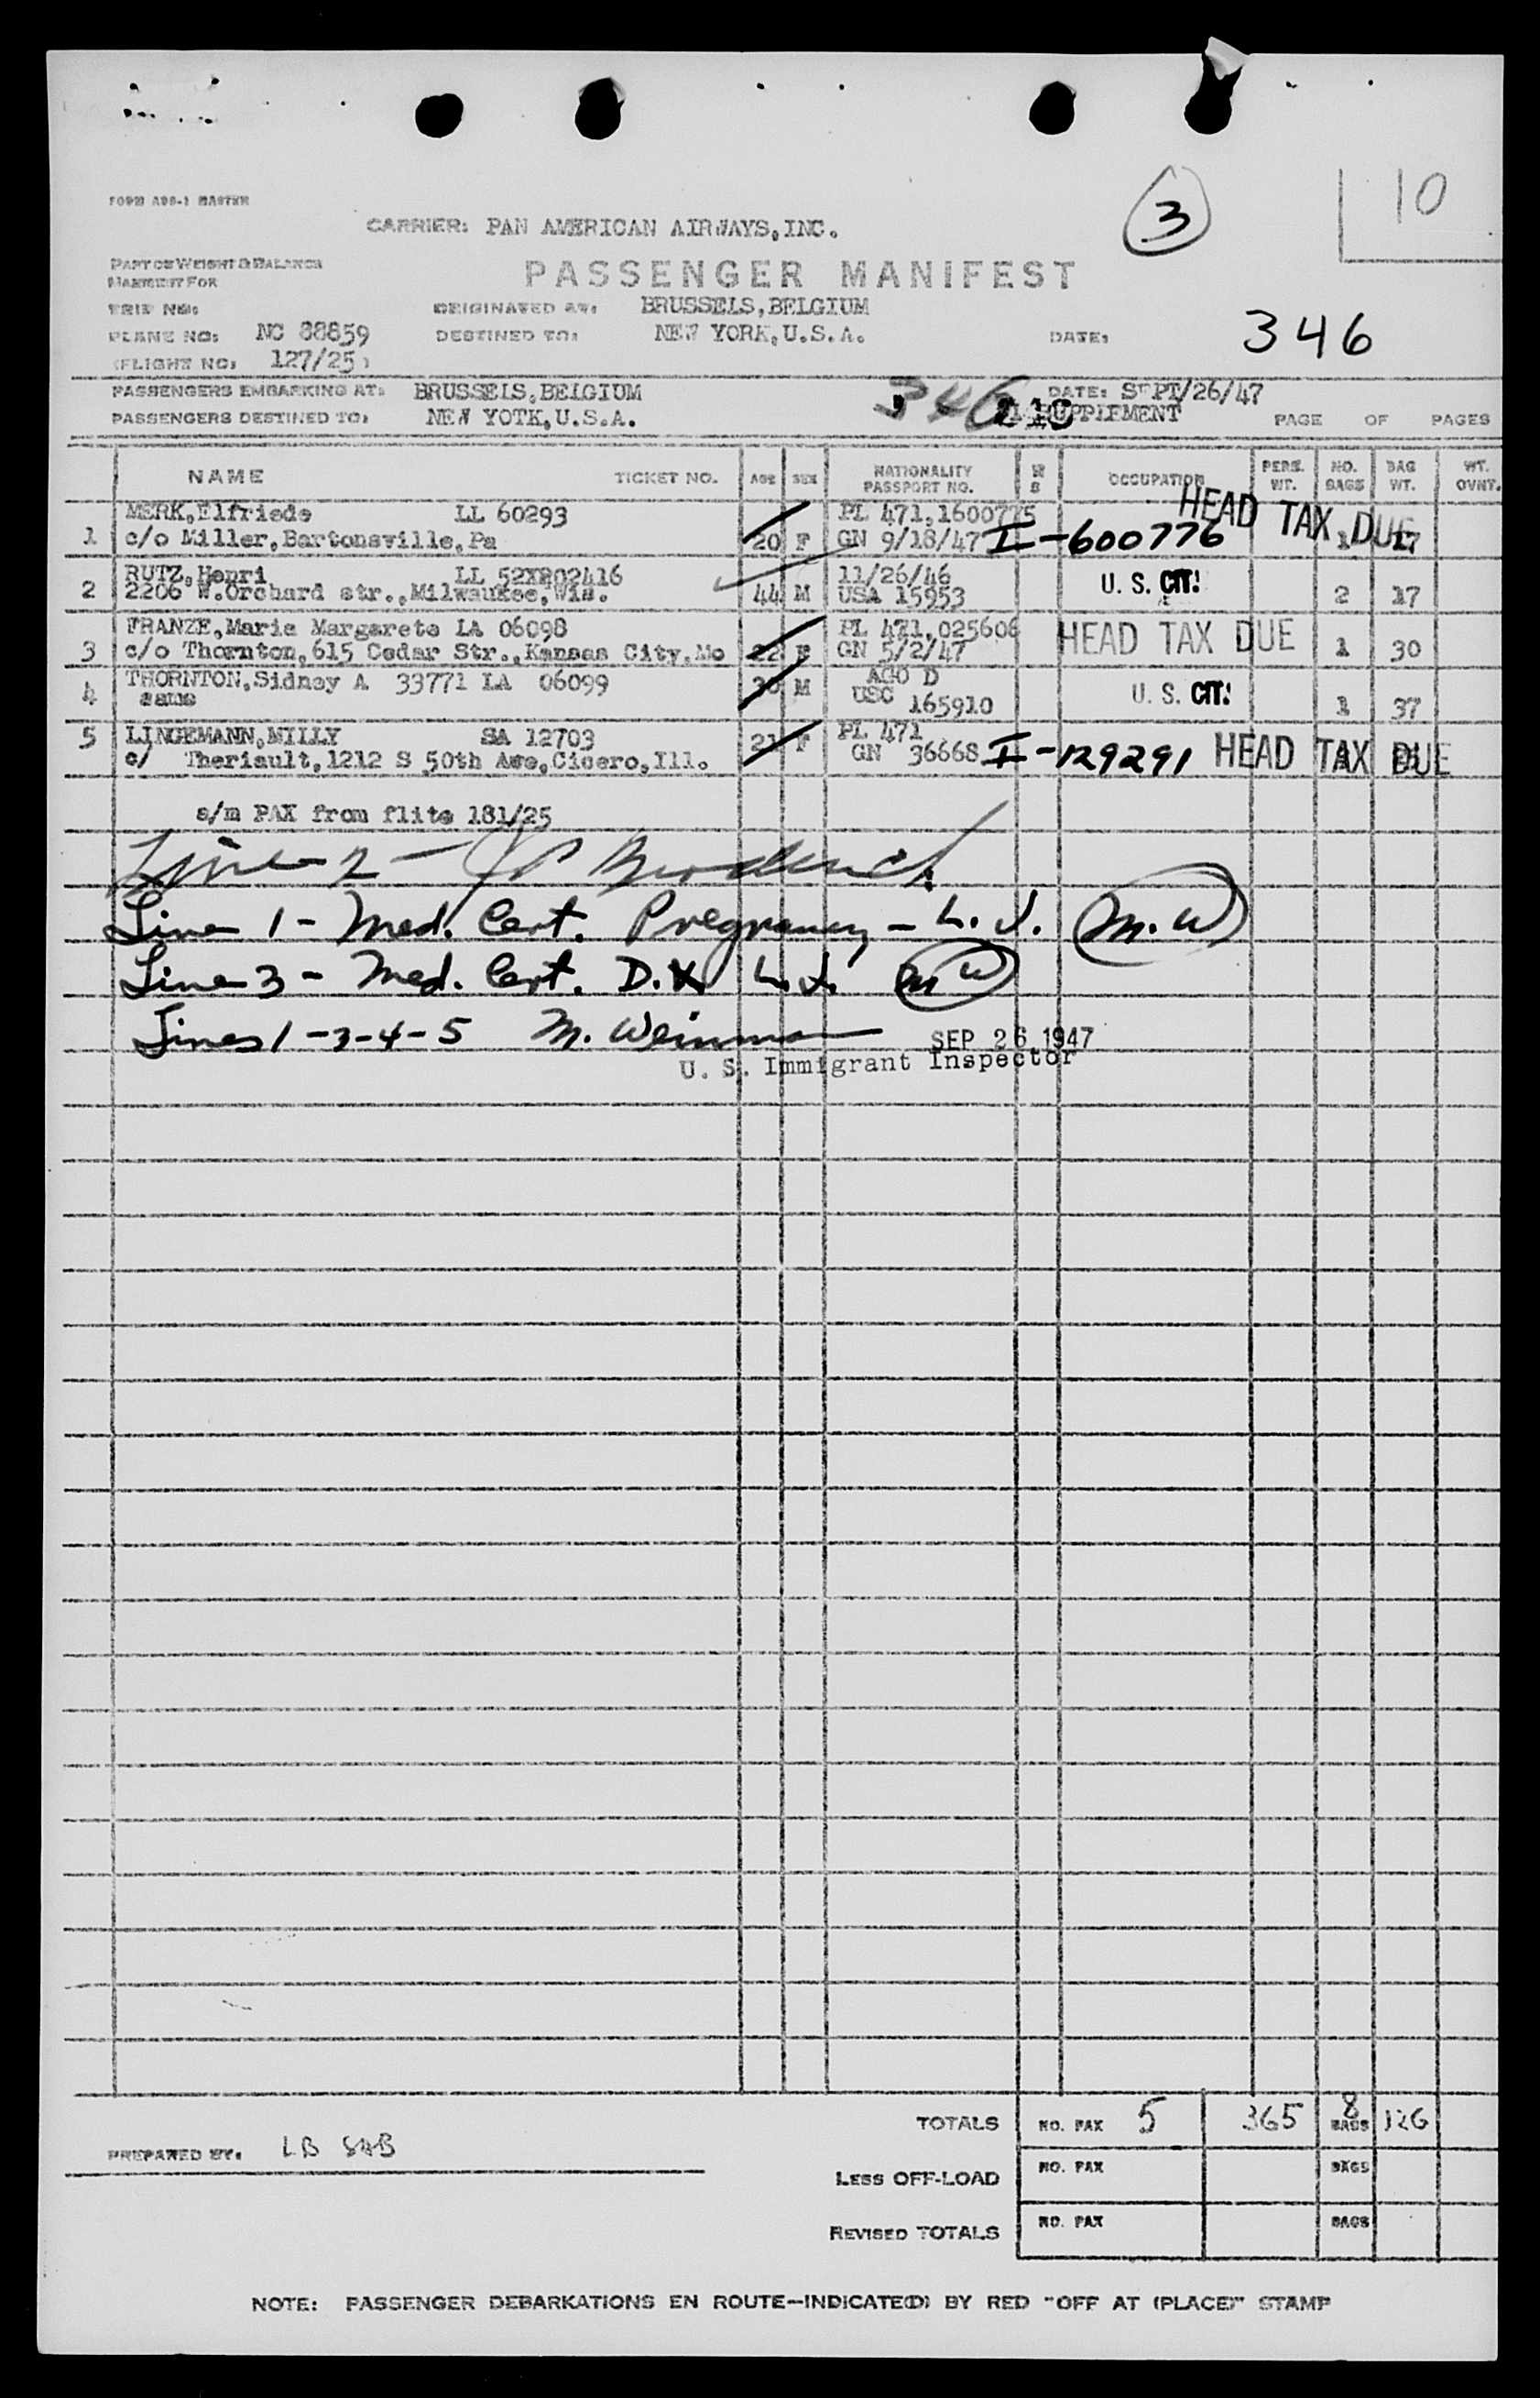 FORM ADS-1 MASTER
3
10
CARRIER: PAN AMERICAN AIRWAYS, INC.
PART OF WEIGHT & BALANCE
MANIFEST FOR
PASSENGER MANIFEST
TRIP NO:
ORIGINATED AT: BRUSSELS, BELGIUM
PLANE NO: NC 88859
DESTINED TO: NEW YORK, U.S.A.
DATE: 346
(FLIGHT NO: 127/25)
PASSENGERS EMBARKING AT: BRUSSELS, BELGIUM
346
DATE: SEPT/26/47
PASSENGERS DESTINED TO: NEW YOTK, U.S.A.
SUPPLEMENT
PAGE OF PAGES
NAME TICKET NO. AGE SEX NATIONALITY PASSPORT NO. OCCUPATION PERS. WT. NO. BAGS BAG WT. WT. OVNT.
MERK, Elfriede LL 60293 PL 471, 1600775 HEAD TAX DUE
1 c/o Miller, Bartonsville, Pa 20 F GN 9/18/47 I-600776
RUTZ, Henri 11/26/46 U. S. CIT!
2 2206 W. Orchard str., Milwaukee, Wis. 44 M USA 15953 2 17
FRANZE, Marie Margarete LA 06098 PL 471, 025606 HEAD TAX DUE
3 c/o Thornton, 615 Cedar Str., Kansas City, Mo 22 F GN 5/2/47 1 30
THORNTON, Sidney A 33771 LA 06099 AGO D U. S. CIT!
4 same 30 M USC 165910 1 37
5 LINGEMANN, MILLY SA 12703 21 F PL 471
c/ Theriault, 1212 S 50th Ave, Cicero, Ill. GN 36668 I-129291 HEAD TAX DUE
s/m PAX from flite 181/25
Line 2 -
Line 1 - Med. Cert. Pregnancy - L. J. M. W
Line 3 - Med. Cert. D.X L.J. M W
Lines 1-3-4-5 M. Weinman SEP 26 1947
U. S. Immigrant Inspector
TOTALS NO. PAX 5 365 8 BAGS 126
PREPARED BY: LB
LESS OFF-LOAD NO. PAX BAGS
REVISED TOTALS NO. PAX BAGS
NOTE: PASSENGER DEBARKATIONS EN ROUTE—INDICATE(D) BY RED "OFF AT (PLACE)" STAMP